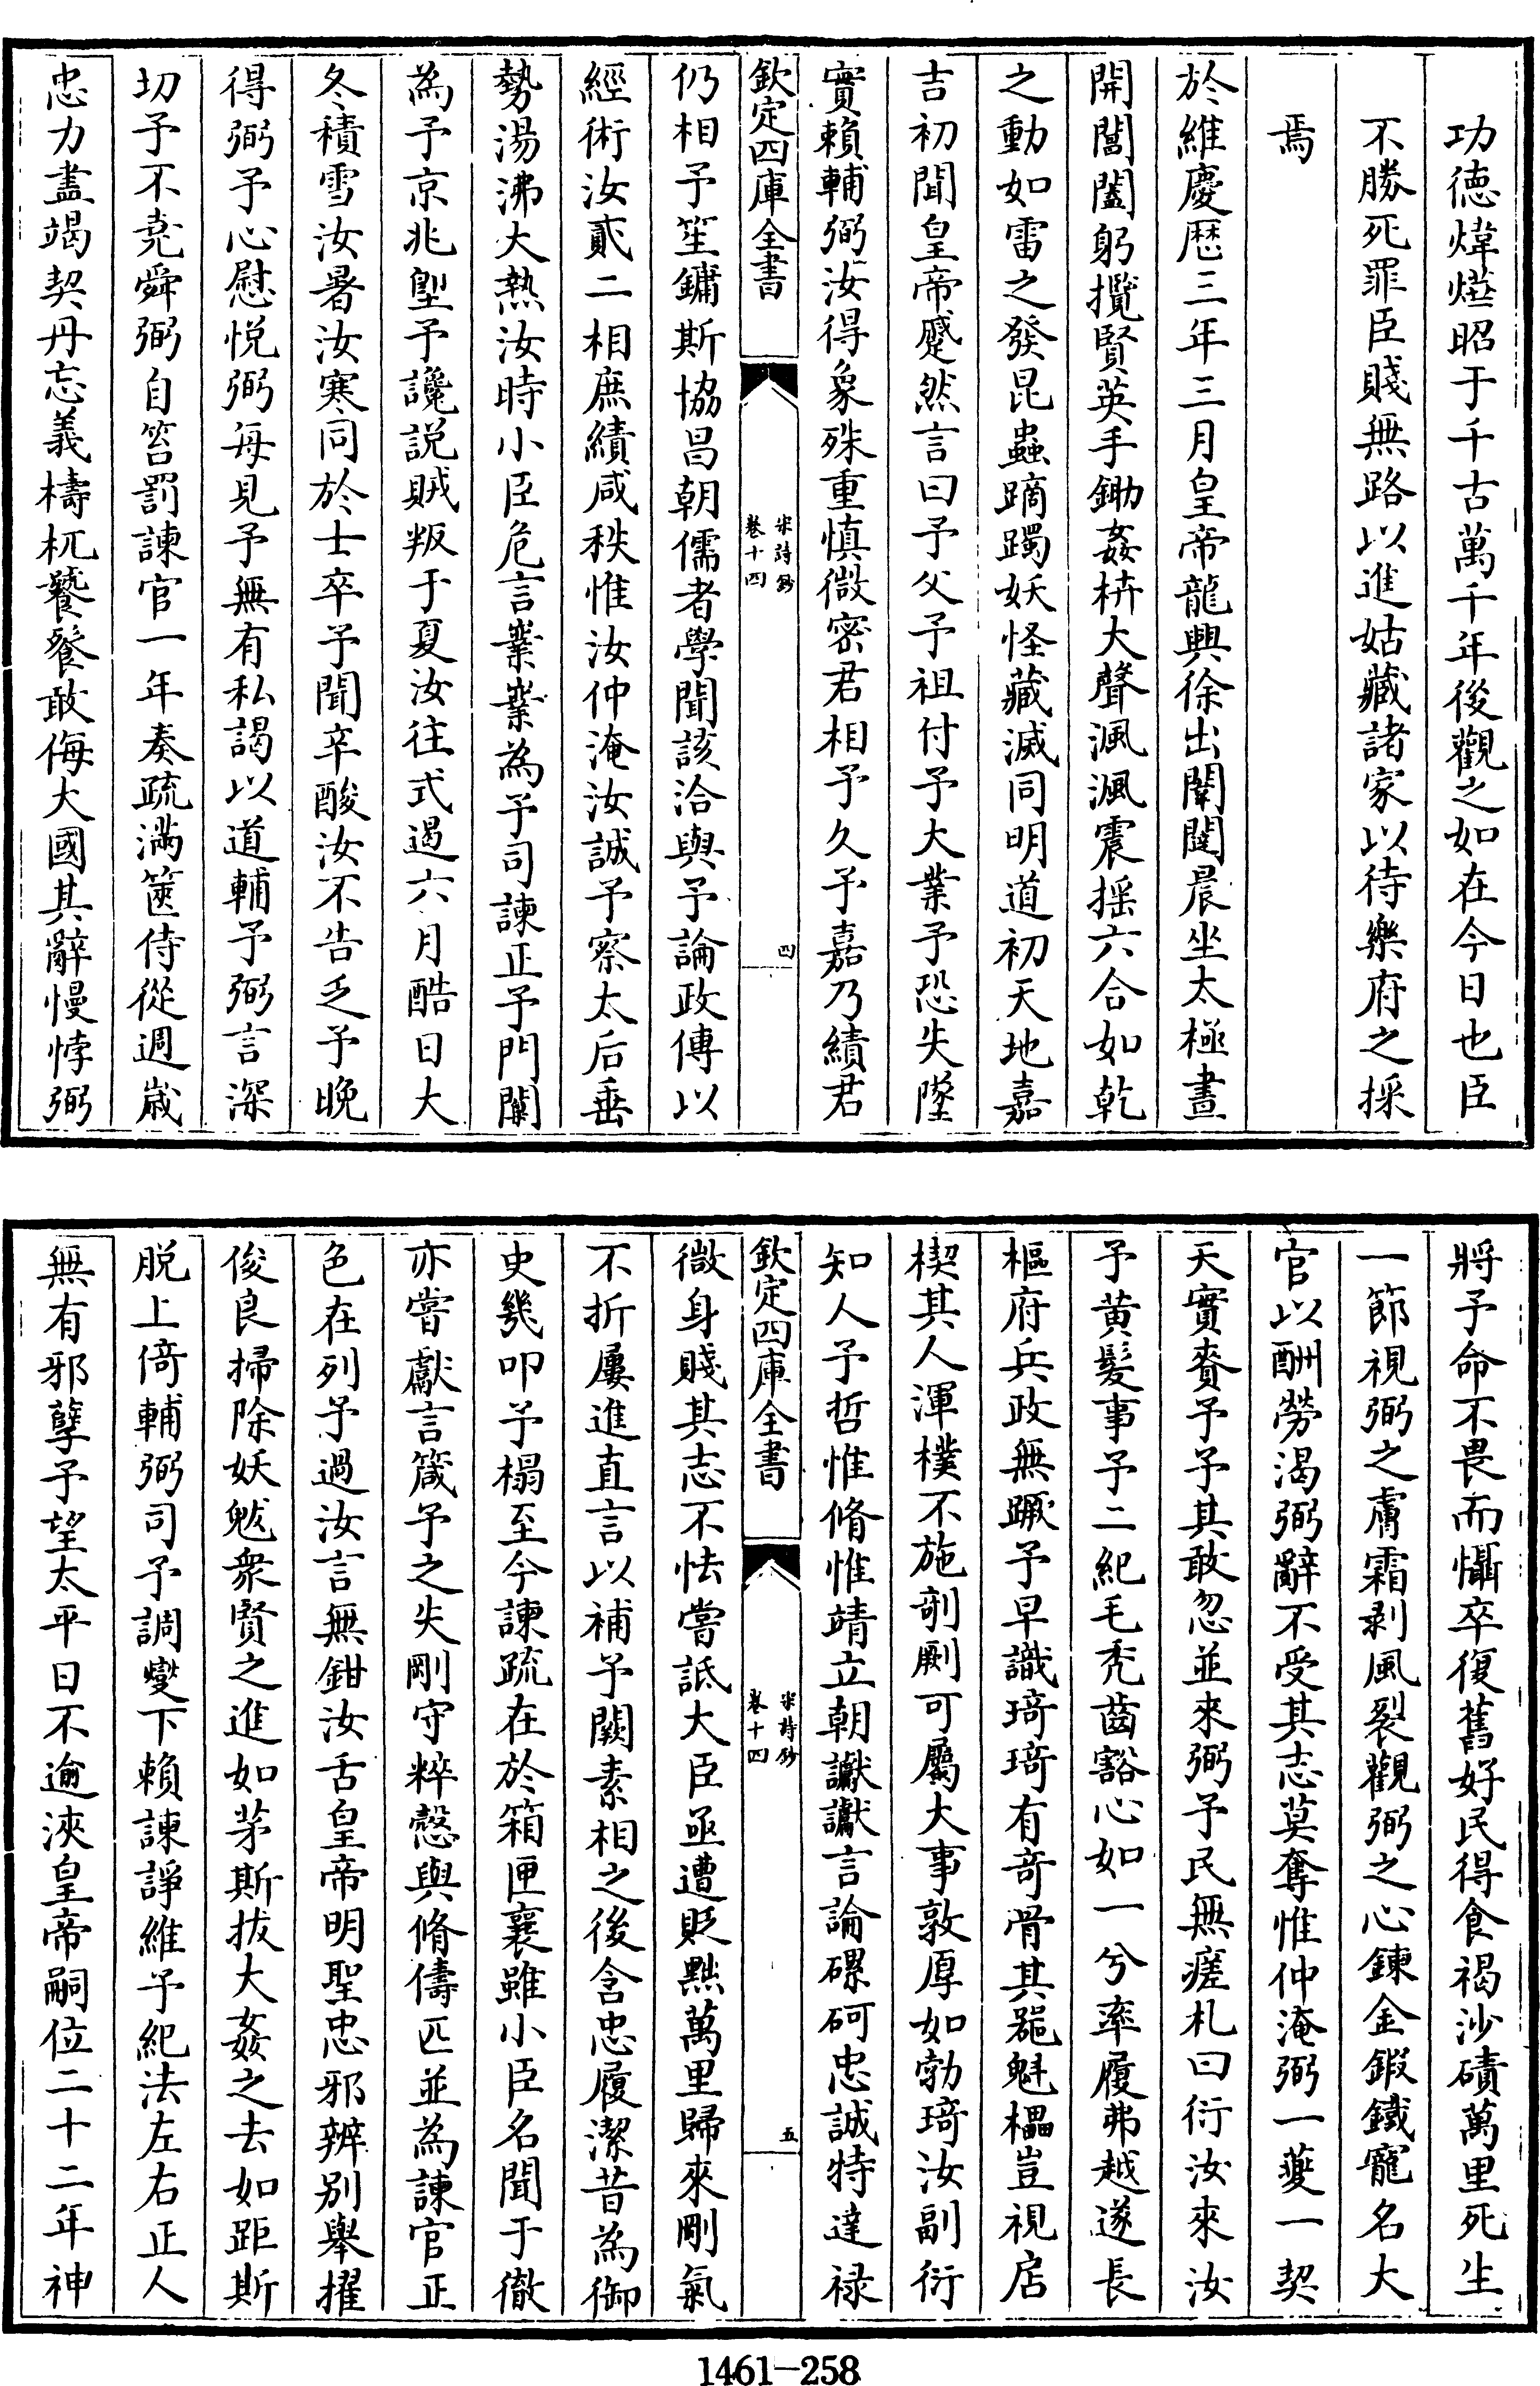 功德煒燁昭于千古萬千年後觀之如在今日也臣
不勝死罪臣賤無路以進姑藏諸家以待樂府之採
焉
於維慶歷三年三月皇帝龍興徐出闈闥晨坐太極晝
開閶闔躬攬賢英手鋤姦枿大聲渢渢震揺六合如乾
之動如雷之發昆蟲蹢躅妖怪藏滅同明道初天地嘉
吉初聞皇帝蹙然言曰予父予祖付予大業予恐失墜
實賴輔弼汝得象殊重慎微密君相予久予嘉乃績君
欽定四庫全書
宋詩鈔
卷十四
四
仍相予笙鏞斯協昌朝儒者學聞該洽與予論政傅以
經術汝貳二相庶績咸秩惟汝仲淹汝誠予察太后垂
勢湯沸火熱汝時小臣危言嶪嶪為予司諫正予門闑
為予京兆堲予讒説賊叛于夏汝往式遏六月酷日大
冬積雪汝暑汝寒同於士卒予聞辛酸汝不告乏予晚
得弼予心慰悅弼每見予無有私謁以道輔予弼言深
切予不堯舜弼自笞罰諫官一年奏疏滿篋侍從週嵗
忠力盡竭契丹忘義檮杌饕餮敢侮大國其辭慢悖弼
將予命不畏而懾卒復舊好民得食褐沙磧萬里死生
一節視弼之膚霜剥風裂觀弼之心鍊金鍜鐵寵名大
官以酬勞渴弼辭不受其志莫奪惟仲淹弼一夔一契
天實賚予予其敢忽並來弼予民無瘥札曰衍汝來汝
予黄髮事予二紀毛秃齒豁心如一兮率履弗越遂長
樞府兵政無蹶予早識琦琦有竒骨其器魁櫑豈視扂
楔其人渾樸不施剞劂可屬大事敦厚如勃琦汝副衍
知人予哲惟脩惟靖立朝讞讞言論磥砢忠誠特達禄
欽定四庫全書
宋詩鈔
卷十四
五
微身賤其志不怯嘗詆大臣亟遭貶黜萬里歸來剛氣
不折屢進直言以補予闕素相之後含忠履潔昔為御
史幾叩予榻至今諫疏在於箱匣襄雖小臣名聞于徹
亦嘗獻言箴予之失剛守粹慤與脩儔匹並為諫官正
色在列予過汝言無鉗汝舌皇帝明聖忠邪辨别舉擢
俊良掃除妖魃衆賢之進如茅斯拔大姦之去如距斯
脱上倚輔弼司予調燮下賴諫諍維予紀法左右正人
無有邪孽予望太平日不逾浹皇帝嗣位二十二年神
1461-258